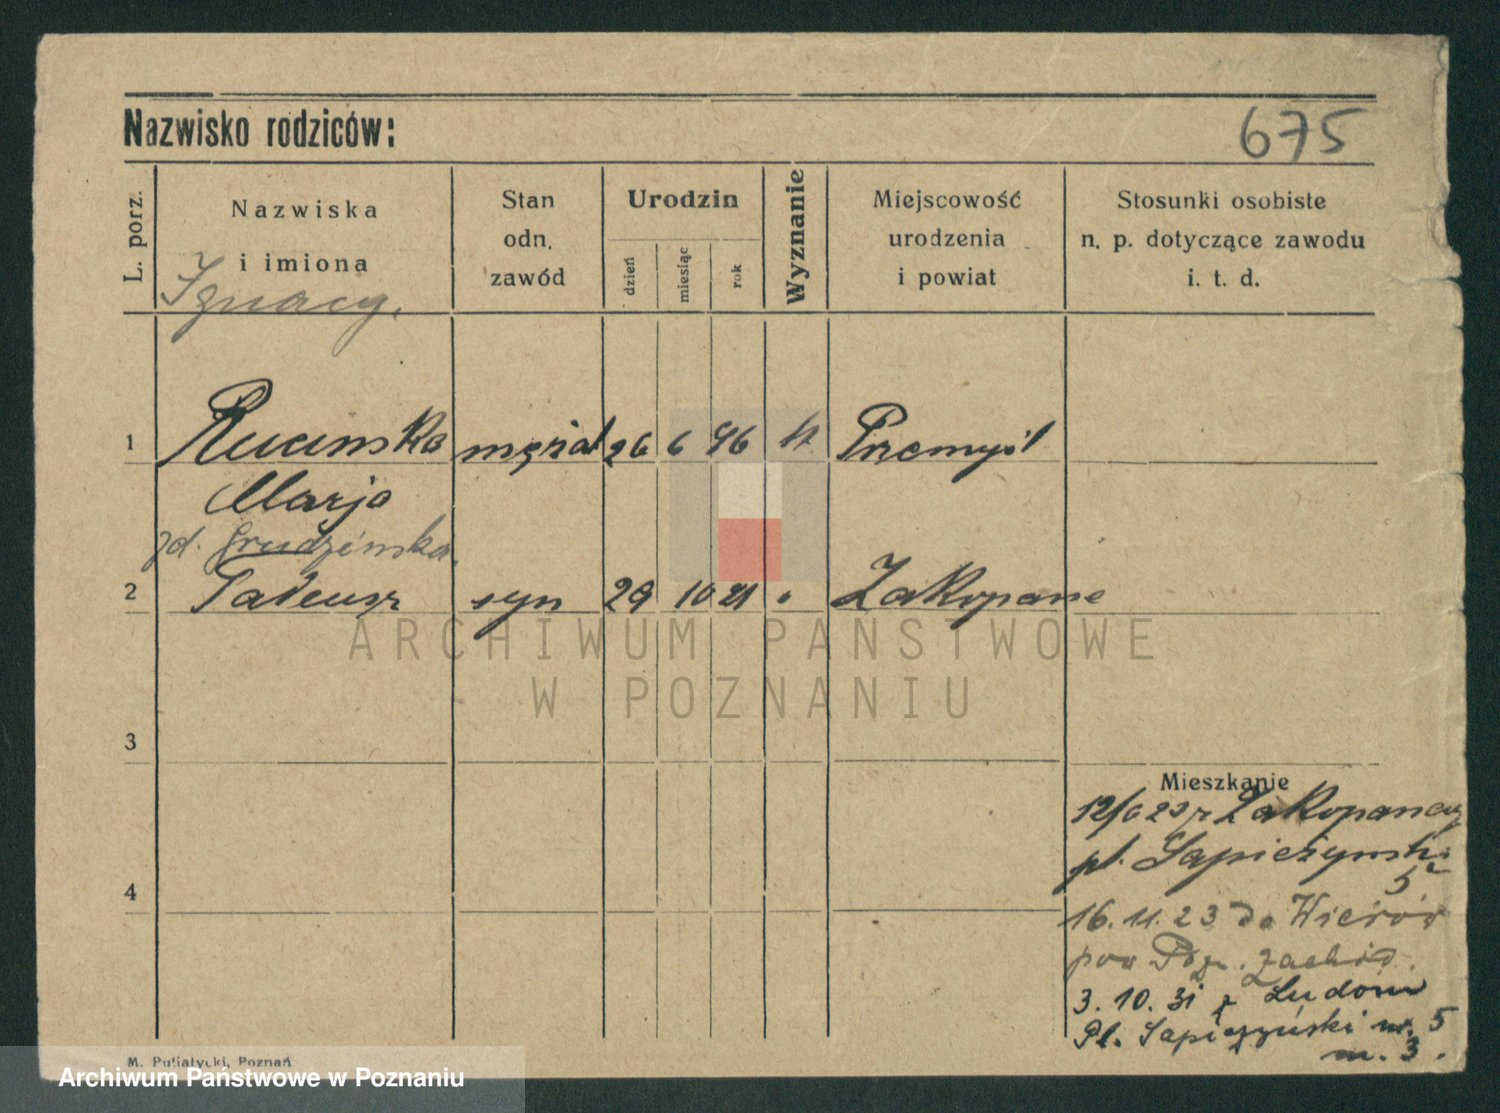 Nazwisko rodziców:
675
L. porz.
Nazwiska
i imiona
Ignacy.
Stan
odn.
zawód
Urodzin
dzień
miesiąc
rok
Wyznanie
Miejscowość
urodzenia
i powiat
Stosunki osobiste
n. p. dotyczące zawodu
i. t. d.
1 Rucińska mężat 26 6 96 k Przemyśl
Marja
zd. Grudzińska.
2 Tadeusz syn 29 10 21 " Zakopane
ARCHIWUM PAŃSTWOWE
W POZNANIU
3
4
Mieszkanie
12/6 23 z Zakopanego
pl. Sapieżyński
5
16.11.23 do
pow Pozn. Zachód.
3.10.31 z Ludom
Pl. Sapieżyński nr. 5
m. 3.
M. Putiatycki, Poznań
Archiwum Państwowe w Poznaniu